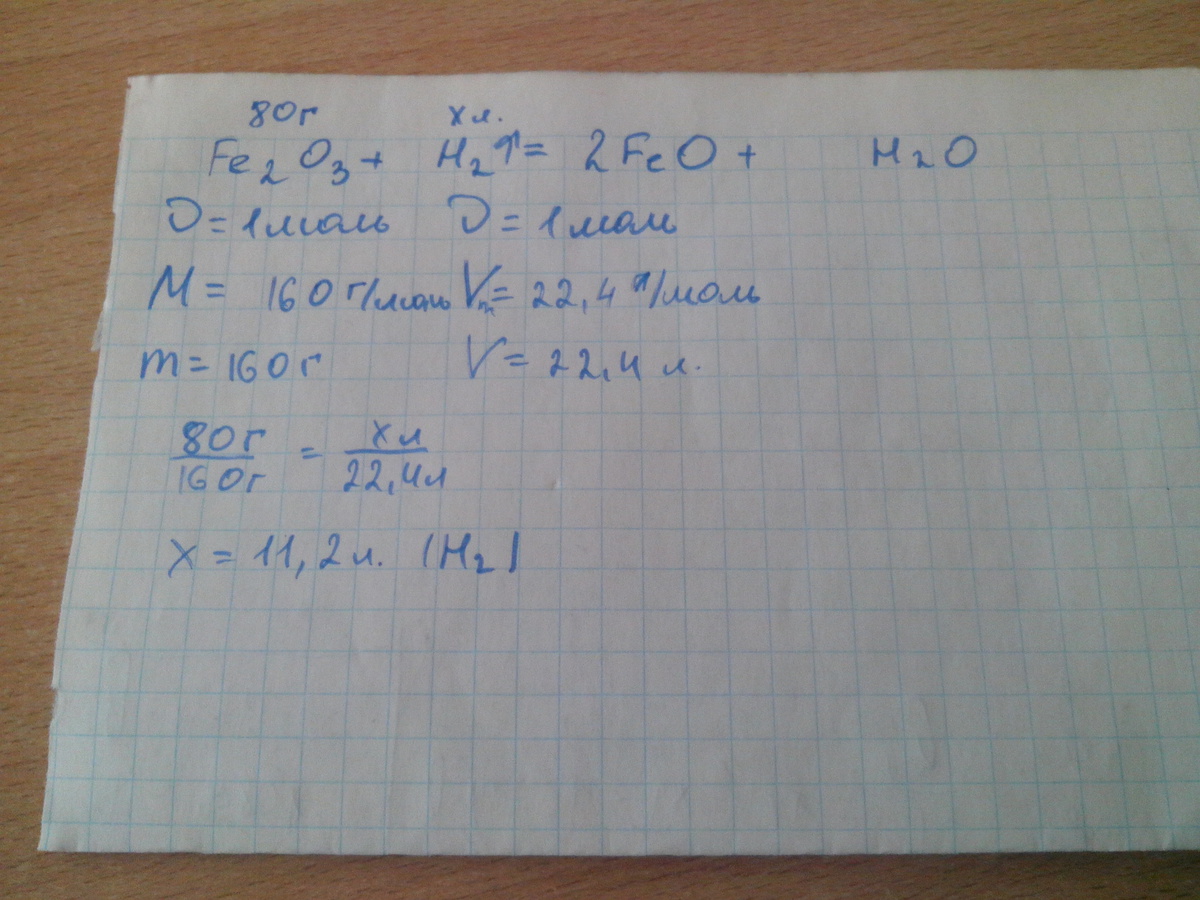 80г хл.
Fe2O3 + H2↑ = 2FeO + H2O
ν = 1моль ν = 1 моль
M = 160 г/моль Vm = 22,4 л/моль
m = 160 г V = 22,4 л.
80г/160г = хл/22,4л
x = 11,2 л. (H2)